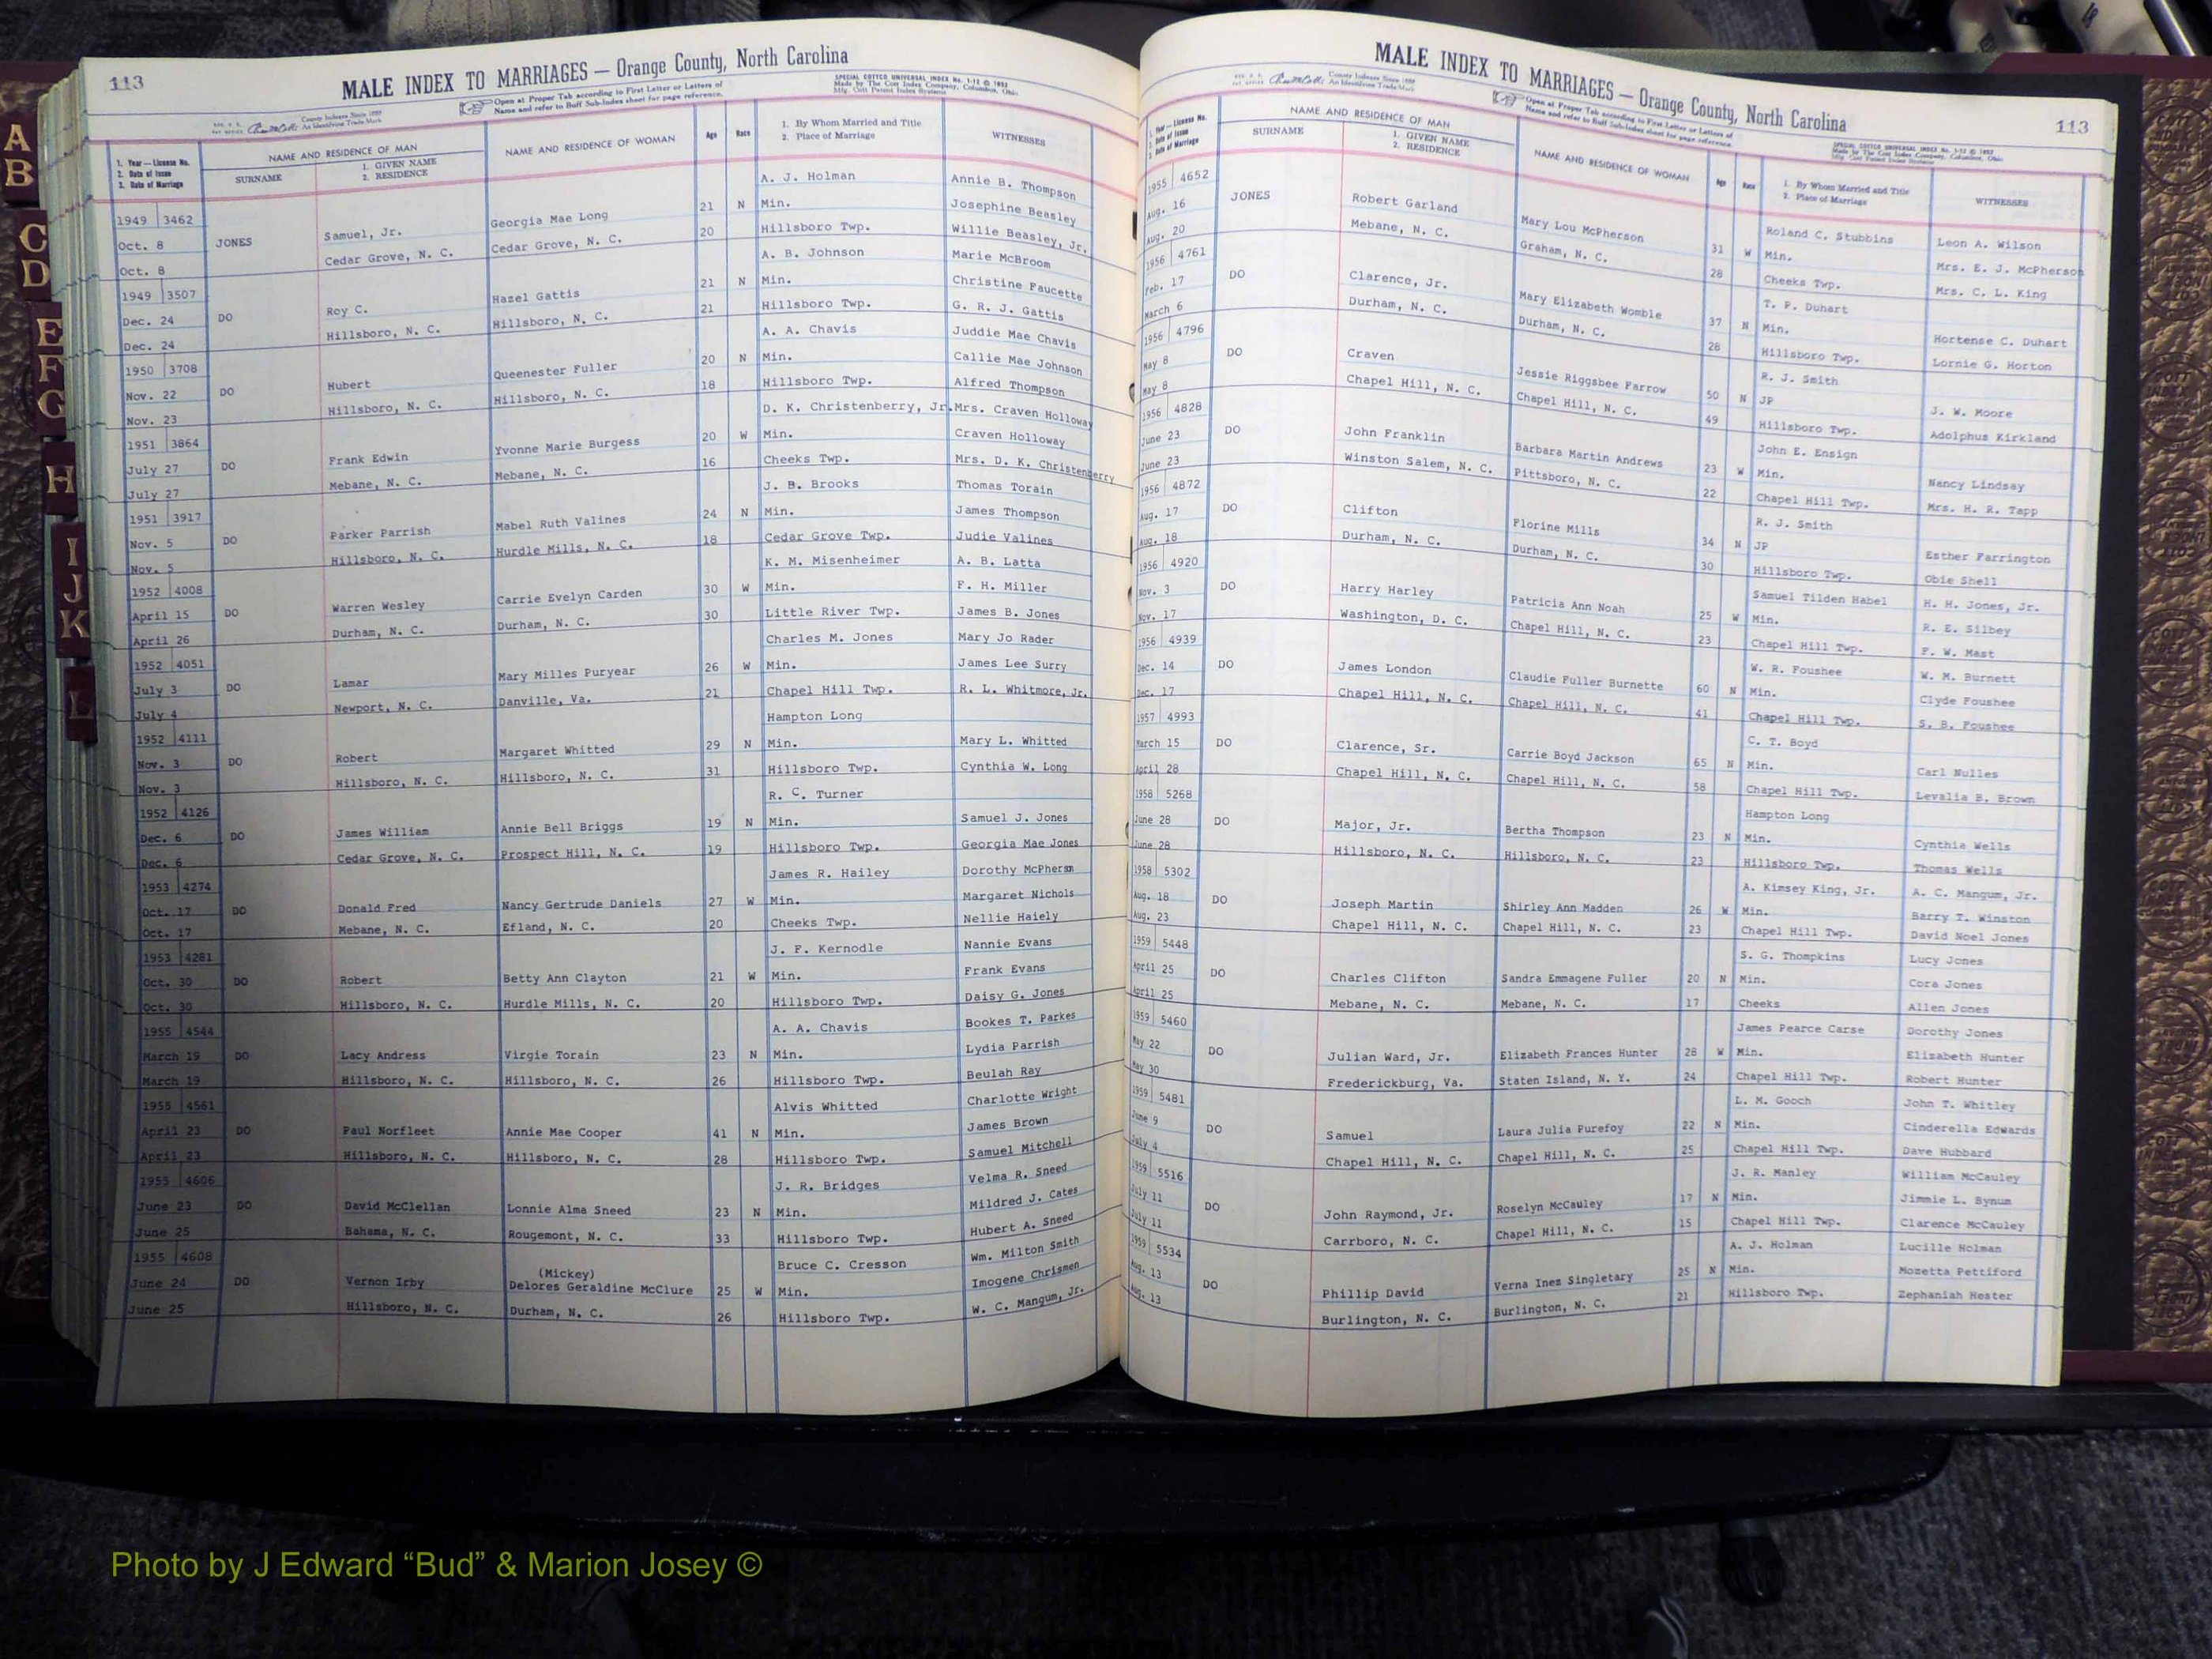 113
MALE INDEX TO MARRIAGES — Orange County, North Carolina
Open at Proper Tab according to First Letter or Letters of
Name and refer to Buff Sub-Index sheet for page reference.
SPECIAL COTTCO UNIVERSAL INDEX No. 1-12 © 1952
Made by The Cott Index Company, Columbus, Ohio
Mfg. Cott Patent Index Systems
County Indexes Since 1888
An Identifying Trade Mark
1. Year — License No.
2. Date of Issue
3. Date of Marriage
NAME AND RESIDENCE OF MAN
SURNAME
1. GIVEN NAME
2. RESIDENCE
NAME AND RESIDENCE OF WOMAN
Age
Race
1. By Whom Married and Title
2. Place of Marriage
WITNESSES
A. J. Holman Annie B. Thompson
1949 3462 Georgia Mae Long 21 N Min. Josephine Beasley
Oct. 8 JONES Samuel, Jr. Cedar Grove, N. C. 20 Hillsboro Twp. Willie Beasley, Jr.
Oct. 8 Cedar Grove, N. C. A. B. Johnson Marie McBroom
1949 3507 Hazel Gattis 21 N Min. Christine Faucette
Dec. 24 DO Roy C. Hillsboro, N. C. 21 Hillsboro Twp. G. R. J. Gattis
Dec. 24 Hillsboro, N. C. A. A. Chavis Juddie Mae Chavis
1950 3708 Queenester Fuller 20 N Min. Callie Mae Johnson
Nov. 22 DO Hubert Hillsboro, N. C. 18 Hillsboro Twp. Alfred Thompson
Nov. 23 Hillsboro, N. C. D. K. Christenberry, Jr. Mrs. Craven Holloway
1951 3864 Yvonne Marie Burgess 20 W Min. Craven Holloway
July 27 DO Frank Edwin Mebane, N. C. 16 Cheeks Twp. Mrs. D. K. Christenberry
July 27 Mebane, N. C. J. B. Brooks Thomas Torain
1951 3917 Mabel Ruth Valines 24 N Min. James Thompson
Nov. 5 DO Parker Parrish Hurdle Mills, N. C. 18 Cedar Grove Twp. Judie Valines
Nov. 5 Hillsboro, N. C. K. M. Misenheimer A. B. Latta
1952 4008 Carrie Evelyn Carden 30 W Min. F. H. Miller
April 15 DO Warren Wesley Durham, N. C. 30 Little River Twp. James B. Jones
April 26 Durham, N. C. Charles M. Jones Mary Jo Rader
1952 4051 Mary Milles Puryear 26 W Min. James Lee Surry
July 3 DO Lamar Danville, Va. 21 Chapel Hill Twp. R. L. Whitmore, Jr.
July 4 Newport, N. C. Hampton Long
1952 4111 Margaret Whitted 29 N Min. Mary L. Whitted
Nov. 3 DO Robert Hillsboro, N. C. 31 Hillsboro Twp. Cynthia W. Long
Nov. 3 Hillsboro, N. C. R. C. Turner
1952 4126 Annie Bell Briggs 19 N Min. Samuel J. Jones
Dec. 6 DO James William Prospect Hill, N. C. 19 Hillsboro Twp. Georgia Mae Jones
Dec. 6 Cedar Grove, N. C. James R. Hailey Dorothy McPherson
1953 4274 Nancy Gertrude Daniels 27 W Min. Margaret Nichols
Oct. 17 DO Donald Fred Efland, N. C. 20 Cheeks Twp. Nellie Haiely
Oct. 17 Mebane, N. C. J. F. Kernodle Nannie Evans
1953 4281 Betty Ann Clayton 21 W Min. Frank Evans
Oct. 30 DO Robert Hurdle Mills, N. C. 20 Hillsboro Twp. Daisy G. Jones
Oct. 30 Hillsboro, N. C. A. A. Chavis Bookes T. Parkes
1955 4544 Virgie Torain 23 N Min. Lydia Parrish
March 19 DO Lacy Andress Hillsboro, N. C. 26 Hillsboro Twp. Beulah Ray
March 19 Hillsboro, N. C. Alvis Whitted Charlotte Wright
1955 4561 Annie Mae Cooper 41 N Min. James Brown
April 23 DO Paul Norfleet Hillsboro, N. C. 28 Hillsboro Twp. Samuel Mitchell
April 23 Hillsboro, N. C. J. R. Bridges Velma R. Sneed
1955 4606 Lonnie Alma Sneed 23 N Min. Mildred J. Cates
June 23 DO David McClellan Rougemont, N. C. 33 Hillsboro Twp. Hubert A. Sneed
June 25 Bahama, N. C. Bruce C. Cresson Wm. Milton Smith
1955 4608 (Mickey)
June 24 DO Vernon Irby Delores Geraldine McClure 25 W Min. Imogene Chrismen
June 25 Hillsboro, N. C. Durham, N. C. 26 Hillsboro Twp. W. C. Mangum, Jr.
MALE INDEX TO MARRIAGES — Orange County, North Carolina
113
Open at Proper Tab according to First Letter or Letters of
Name and refer to Buff Sub-Index sheet for page reference.
SPECIAL COTTCO UNIVERSAL INDEX No. 1-12 © 1952
Made by The Cott Index Company, Columbus, Ohio
Mfg. Cott Patent Index Systems
County Indexes Since 1888
An Identifying Trade Mark
1. Year — License No.
2. Date of Issue
3. Date of Marriage
NAME AND RESIDENCE OF MAN
SURNAME
1. GIVEN NAME
2. RESIDENCE
NAME AND RESIDENCE OF WOMAN
Age
Race
1. By Whom Married and Title
2. Place of Marriage
WITNESSES
1955 4652 Roland C. Stubbins Leon A. Wilson
Aug. 16 JONES Robert Garland Mary Lou McPherson 31 W Min. Mrs. E. J. McPherson
Aug. 20 Mebane, N. C. Graham, N. C. 28 Cheeks Twp. Mrs. C. L. King
1956 4761 T. P. Duhart
Feb. 17 DO Clarence, Jr. Mary Elizabeth Womble 37 N Min. Hortense C. Duhart
March 6 Durham, N. C. Durham, N. C. 28 Hillsboro Twp. Lornie G. Horton
1956 4796 R. J. Smith
May 8 DO Craven Jessie Riggsbee Farrow 50 N JP J. W. Moore
May 8 Chapel Hill, N. C. Chapel Hill, N. C. 49 Hillsboro Twp. Adolphus Kirkland
1956 4828 John E. Ensign
June 23 DO John Franklin Barbara Martin Andrews 23 W Min. Nancy Lindsay
June 23 Winston Salem, N. C. Pittsboro, N. C. 22 Chapel Hill Twp. Mrs. H. R. Tapp
1956 4872 R. J. Smith
Aug. 17 DO Clifton Florine Mills 34 N JP Esther Farrington
Aug. 18 Durham, N. C. Durham, N. C. 30 Hillsboro Twp. Obie Shell
1956 4920 Samuel Tilden Habel H. H. Jones, Jr.
Nov. 3 DO Harry Harley Patricia Ann Noah 25 W Min. R. E. Silbey
Nov. 17 Washington, D. C. Chapel Hill, N. C. 23 Chapel Hill Twp. F. W. Mast
1956 4939 W. R. Foushee W. M. Burnett
Dec. 14 DO James London Claudie Fuller Burnette 60 N Min. Clyde Foushee
Dec. 17 Chapel Hill, N. C. Chapel Hill, N. C. 41 Chapel Hill Twp. S. B. Foushee
1957 4993 C. T. Boyd
March 15 DO Clarence, Sr. Carrie Boyd Jackson 65 N Min. Carl Nulles
April 28 Chapel Hill, N. C. Chapel Hill, N. C. 58 Chapel Hill Twp. Levalia B. Brown
1958 5268 Hampton Long
June 28 DO Major, Jr. Bertha Thompson 23 N Min. Cynthia Wells
June 28 Hillsboro, N. C. Hillsboro, N. C. 23 Hillsboro Twp. Thomas Wells
1958 5302 A. Kimsey King, Jr. A. C. Mangum, Jr.
Aug. 18 DO Joseph Martin Shirley Ann Madden 26 W Min. Barry T. Winston
Aug. 23 Chapel Hill, N. C. Chapel Hill, N. C. 23 Chapel Hill Twp. David Noel Jones
1959 5448 S. G. Thompkins Lucy Jones
April 25 DO Charles Clifton Sandra Emmagene Fuller 20 N Min. Cora Jones
April 25 Mebane, N. C. Mebane, N. C. 17 Cheeks Allen Jones
1959 5460 James Pearce Carse Dorothy Jones
May 22 DO Julian Ward, Jr. Elizabeth Frances Hunter 28 W Min. Elizabeth Hunter
May 30 Frederickburg, Va. Staten Island, N. Y. 24 Chapel Hill Twp. Robert Hunter
1959 5481 L. M. Gooch John T. Whitley
June 9 DO Samuel Laura Julia Purefoy 22 N Min. Cinderella Edwards
July 4 Chapel Hill, N. C. Chapel Hill, N. C. 25 Chapel Hill Twp. Dave Hubbard
1959 5516 J. R. Manley William McCauley
July 11 DO John Raymond, Jr. Roselyn McCauley 17 N Min. Jimmie L. Bynum
July 11 Carrboro, N. C. Chapel Hill, N. C. 15 Chapel Hill Twp. Clarence McCauley
1959 5534 A. J. Holman Lucille Holman
Aug. 13 DO Phillip David Verna Inez Singletary 25 N Min. Mozetta Pettiford
Aug. 13 Burlington, N. C. Burlington, N. C. 21 Hillsboro Twp. Zephaniah Hester
A
B
C
D
E
F
G
H
I
J
K
L
Photo by J Edward “Bud” & Marion Josey ©